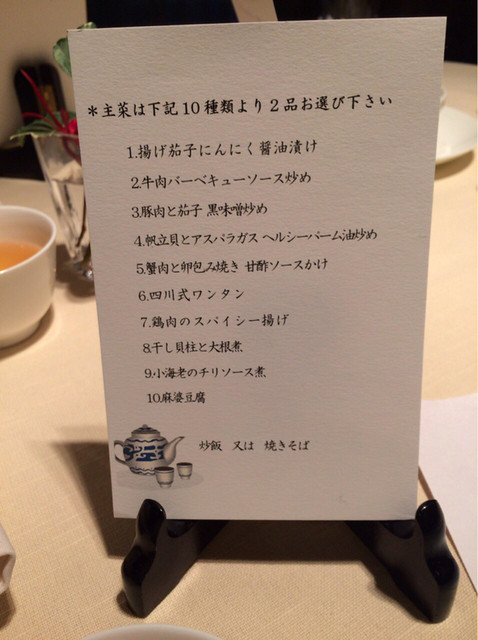 ＊主菜は下記10種類より2品お選び下さい
1.揚げ茄子にんにく醤油漬け
2.牛肉バーベキューソース炒め
3.豚肉と茄子 黒味噌炒め
4.帆立貝とアスパラガス ヘルシーバーム油炒め
5.蟹肉と卵包み焼き 甘酢ソースかけ
6.四川式ワンタン
7.鶏肉のスパイシー揚げ
8.干し貝柱と大根煮
9.小海老のチリソース煮
10.麻婆豆腐
炒飯 又は 焼きそば